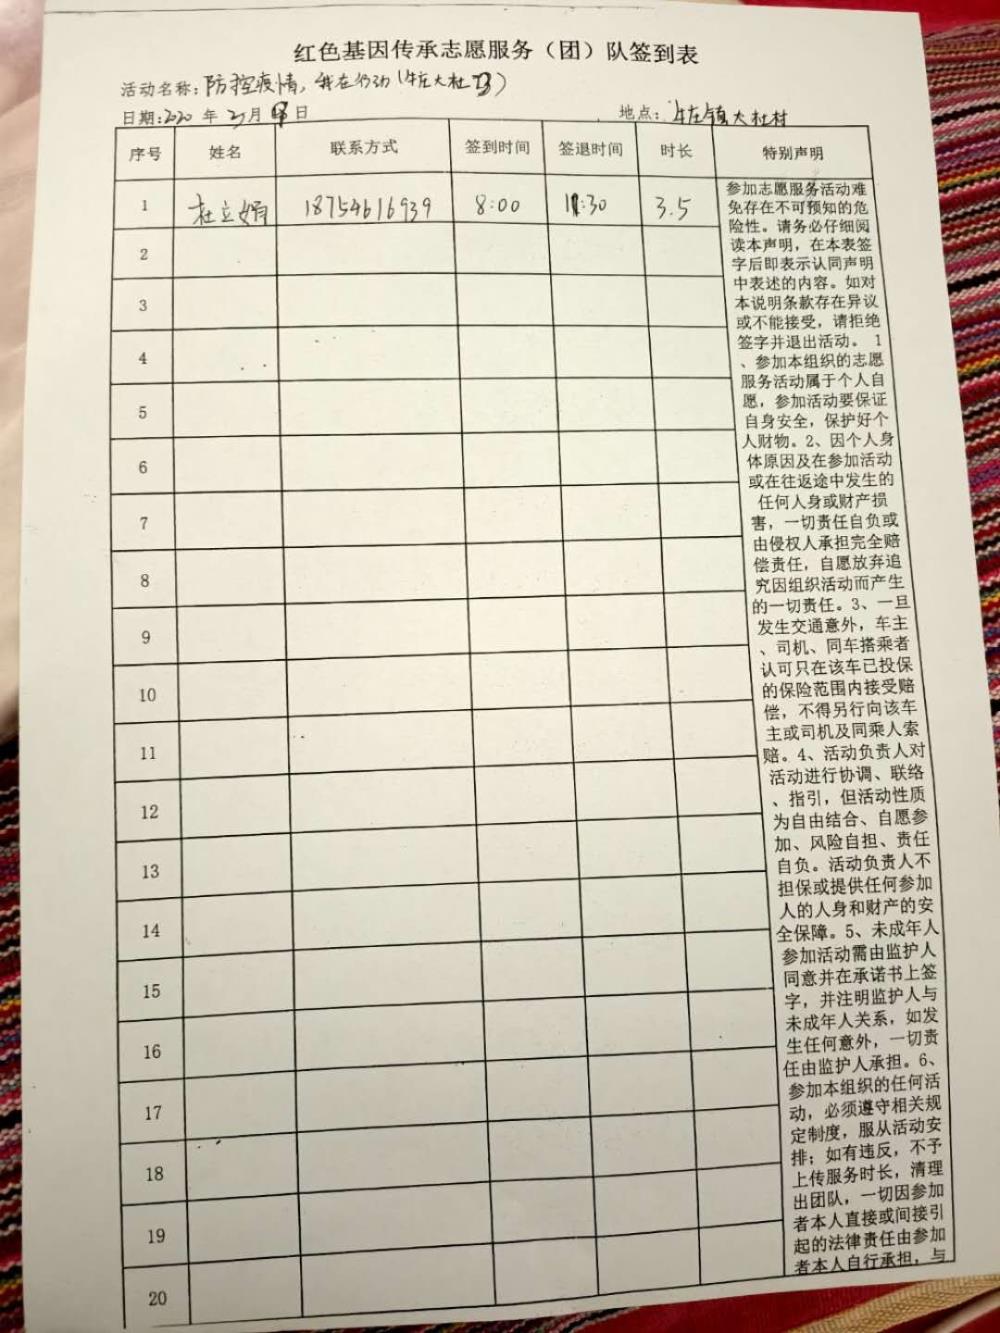 红色基因传承志愿服务（团）队签到表
活动名称：防控疫情，我在行动（牛庄大杜
日期：2020 年 2月 日 地点：牛庄镇大杜村
序号 姓名 联系方式 签到时间 签退时间 时长 特别声明
1 杜立娟 18754616939 8:00 11:30 3.5
2
3
4
5
6
7
8
9
10
11
12
13
14
15
16
17
18
19
20
参加志愿服务活动难
免存在不可预知的危
险性。请务必仔细阅
读本声明，在本表签
字后即表示认同声明
中表述的内容。如对
本说明条款存在异议
或不能接受，请拒绝
签字并退出活动。 1
、参加本组织的志愿
服务活动属于个人自
愿，参加活动要保证
自身安全，保护好个
人财物。2、因个人身
体原因及在参加活动
或在往返途中发生的
任何人身或财产损
害，一切责任自负或
由侵权人承担完全赔
偿责任，自愿放弃追
究因组织活动而产生
的一切责任。3、一旦
发生交通意外，车主
、司机、同车搭乘者
认可只在该车已投保
的保险范围内接受赔
偿，不得另行向该车
主或司机及同乘人索
赔。4、活动负责人对
活动进行协调、联络
、指引，但活动性质
为自由结合、自愿参
加、风险自担、责任
自负。活动负责人不
担保或提供任何参加
人的人身和财产的安
全保障。5、未成年人
参加活动需由监护人
同意并在承诺书上签
字，并注明监护人与
未成年人关系，如发
生任何意外，一切责
任由监护人承担。6、
参加本组织的任何活
动，必须遵守相关规
定制度，服从活动安
排；如有违反，不予
上传服务时长，清理
出团队，一切因参加
者本人直接或间接引
起的法律责任由参加
者本人自行承担，与